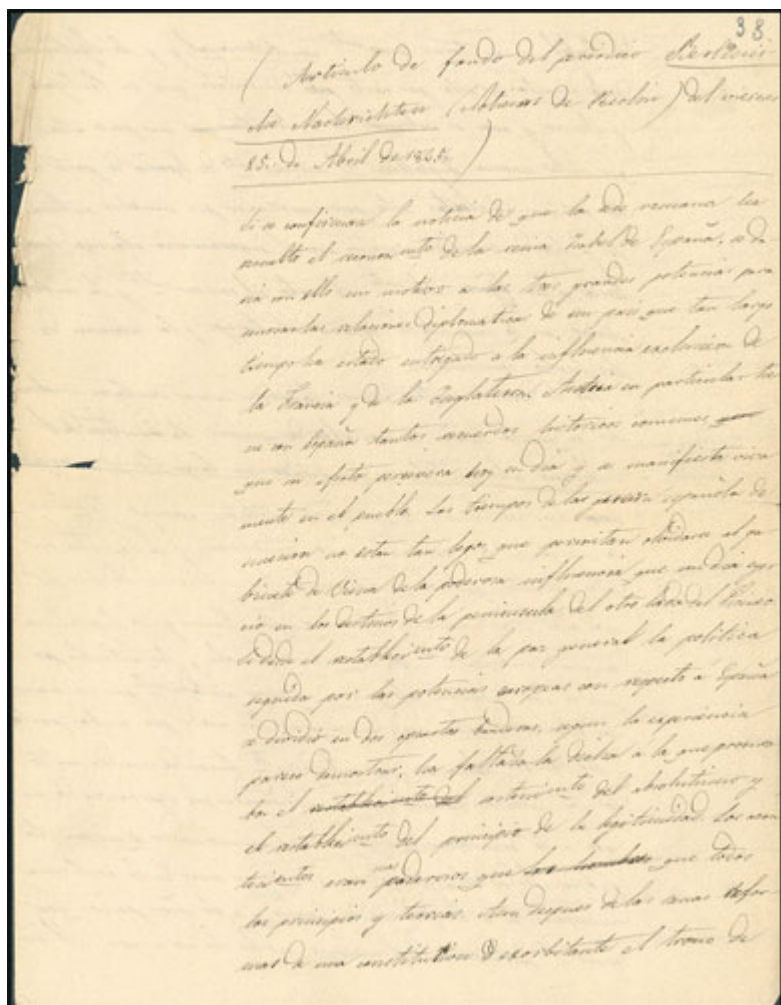 38
( Articulo de fondo del periodico Berlinis
che Nachrichten (Noticias de Berlin) del viernes
25. de Abril de 1845. )
Si se confirman la noticia de que la sede romana ha
resuelto el reconocimiento de la reina Isabel de España, se da
ria con ello un motivo a las tres grandes potencias para
renovar las relaciones diplomatica de un pais que tan largo
tiempo ha estado entregado a la influencia exclusiva de
la Francia y de la Inglaterra. Austria en particular tie
ne con España tantos recuerdos historicos comunes
que en efecto hoy en dia y se manifiesta viva
mente en el pueblo. Los tiempos de la guerra española de
sucesion no estan tan lejos, que permitan olvidarse al ga
binete de Viena de la poderosa influencia que un dia ejer
cio en los destinos de la peninsula del otro lado del Pirineo
desde el establecimiento de la paz general la politica
seguida por las potencias europeas con respecto a España
se dividio en dos opuestas banderas, segun la experiencia
parece demostrar, ha faltado la dicha a la que procura
ba el establecimiento del del absolutismo y
el establecimiento del principio de la legitimidad. Los acon
tecimientos eran mas poderosos que los hombres que todos
los principios y teorias. Aun despues de las refor
mas de una constitution exorbitante el trono de